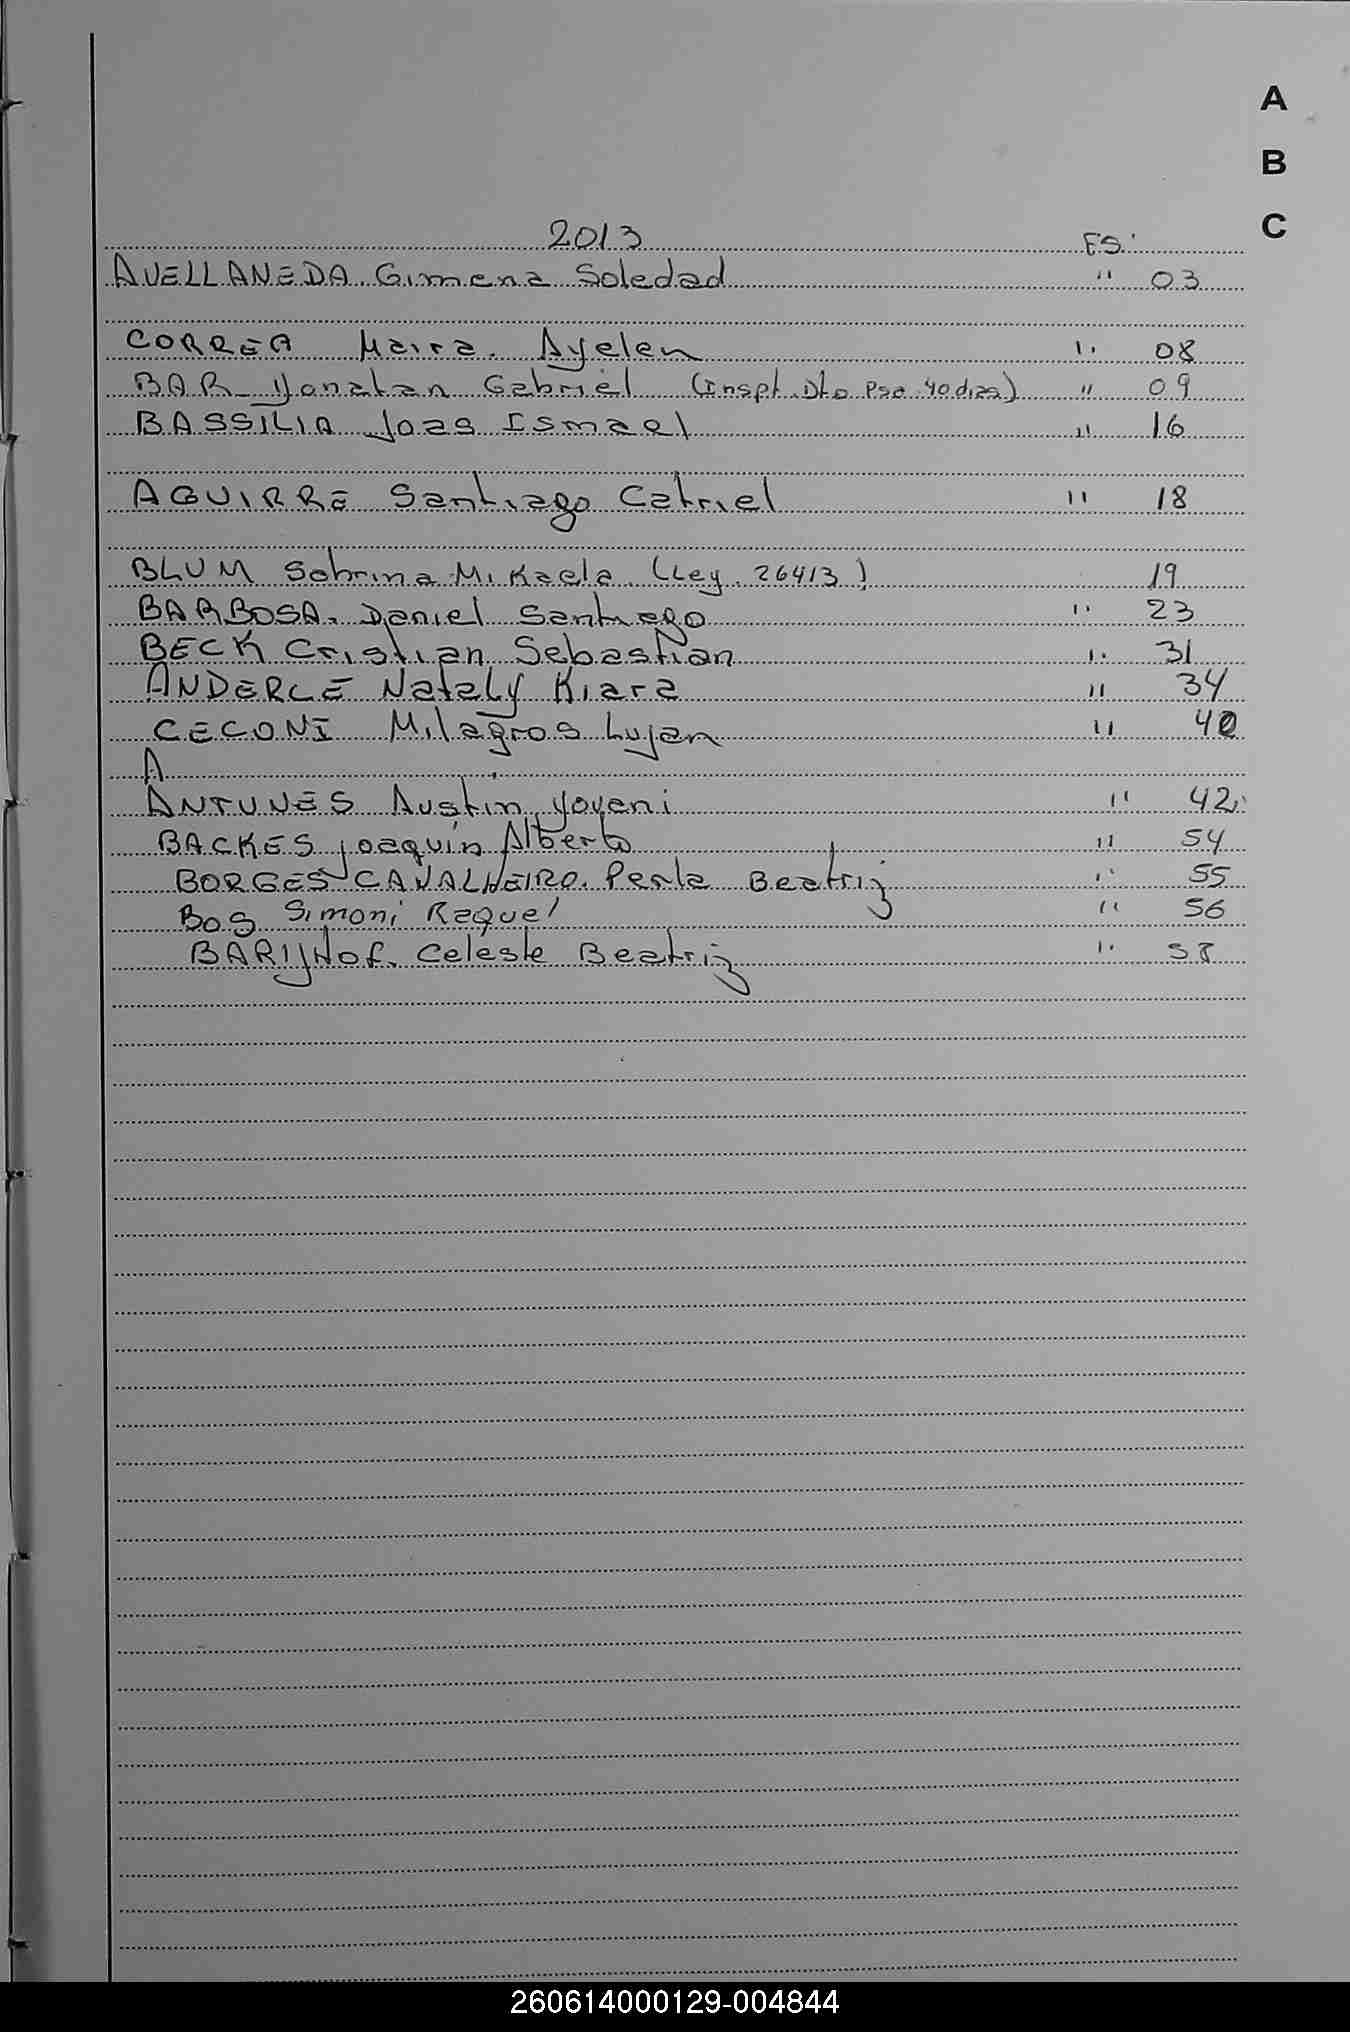 A
B
C
2013 FS.
AVELLANEDA. Gimena Soledad " 03
CORREA Maira. Ayelen " 08
BAR Yonatan Gabriel (Inspt. Dto Psa. 40 dias) " 09
BASSILIA Joas Ismael " 16
AGUIRRE Santiago Catriel " 18
BLUM Sabrina Mikaela. (Ley. 26413) 19
BARBOSA. Daniel Santiago " 23
BECK Cristian Sebastian " 31
ANDERLE Nataly Kiara " 34
CECONI Milagros Lujan " 40
A
ANTUNES Austin Yovani " 42
BACKES Joaquin Alberto " 54
BORGES CAVALHEIRO. Perla Beatriz " 55
BOS Simoni Raquel " 56
BARIJHof. Celeste Beatriz " 58
260614000129-004844